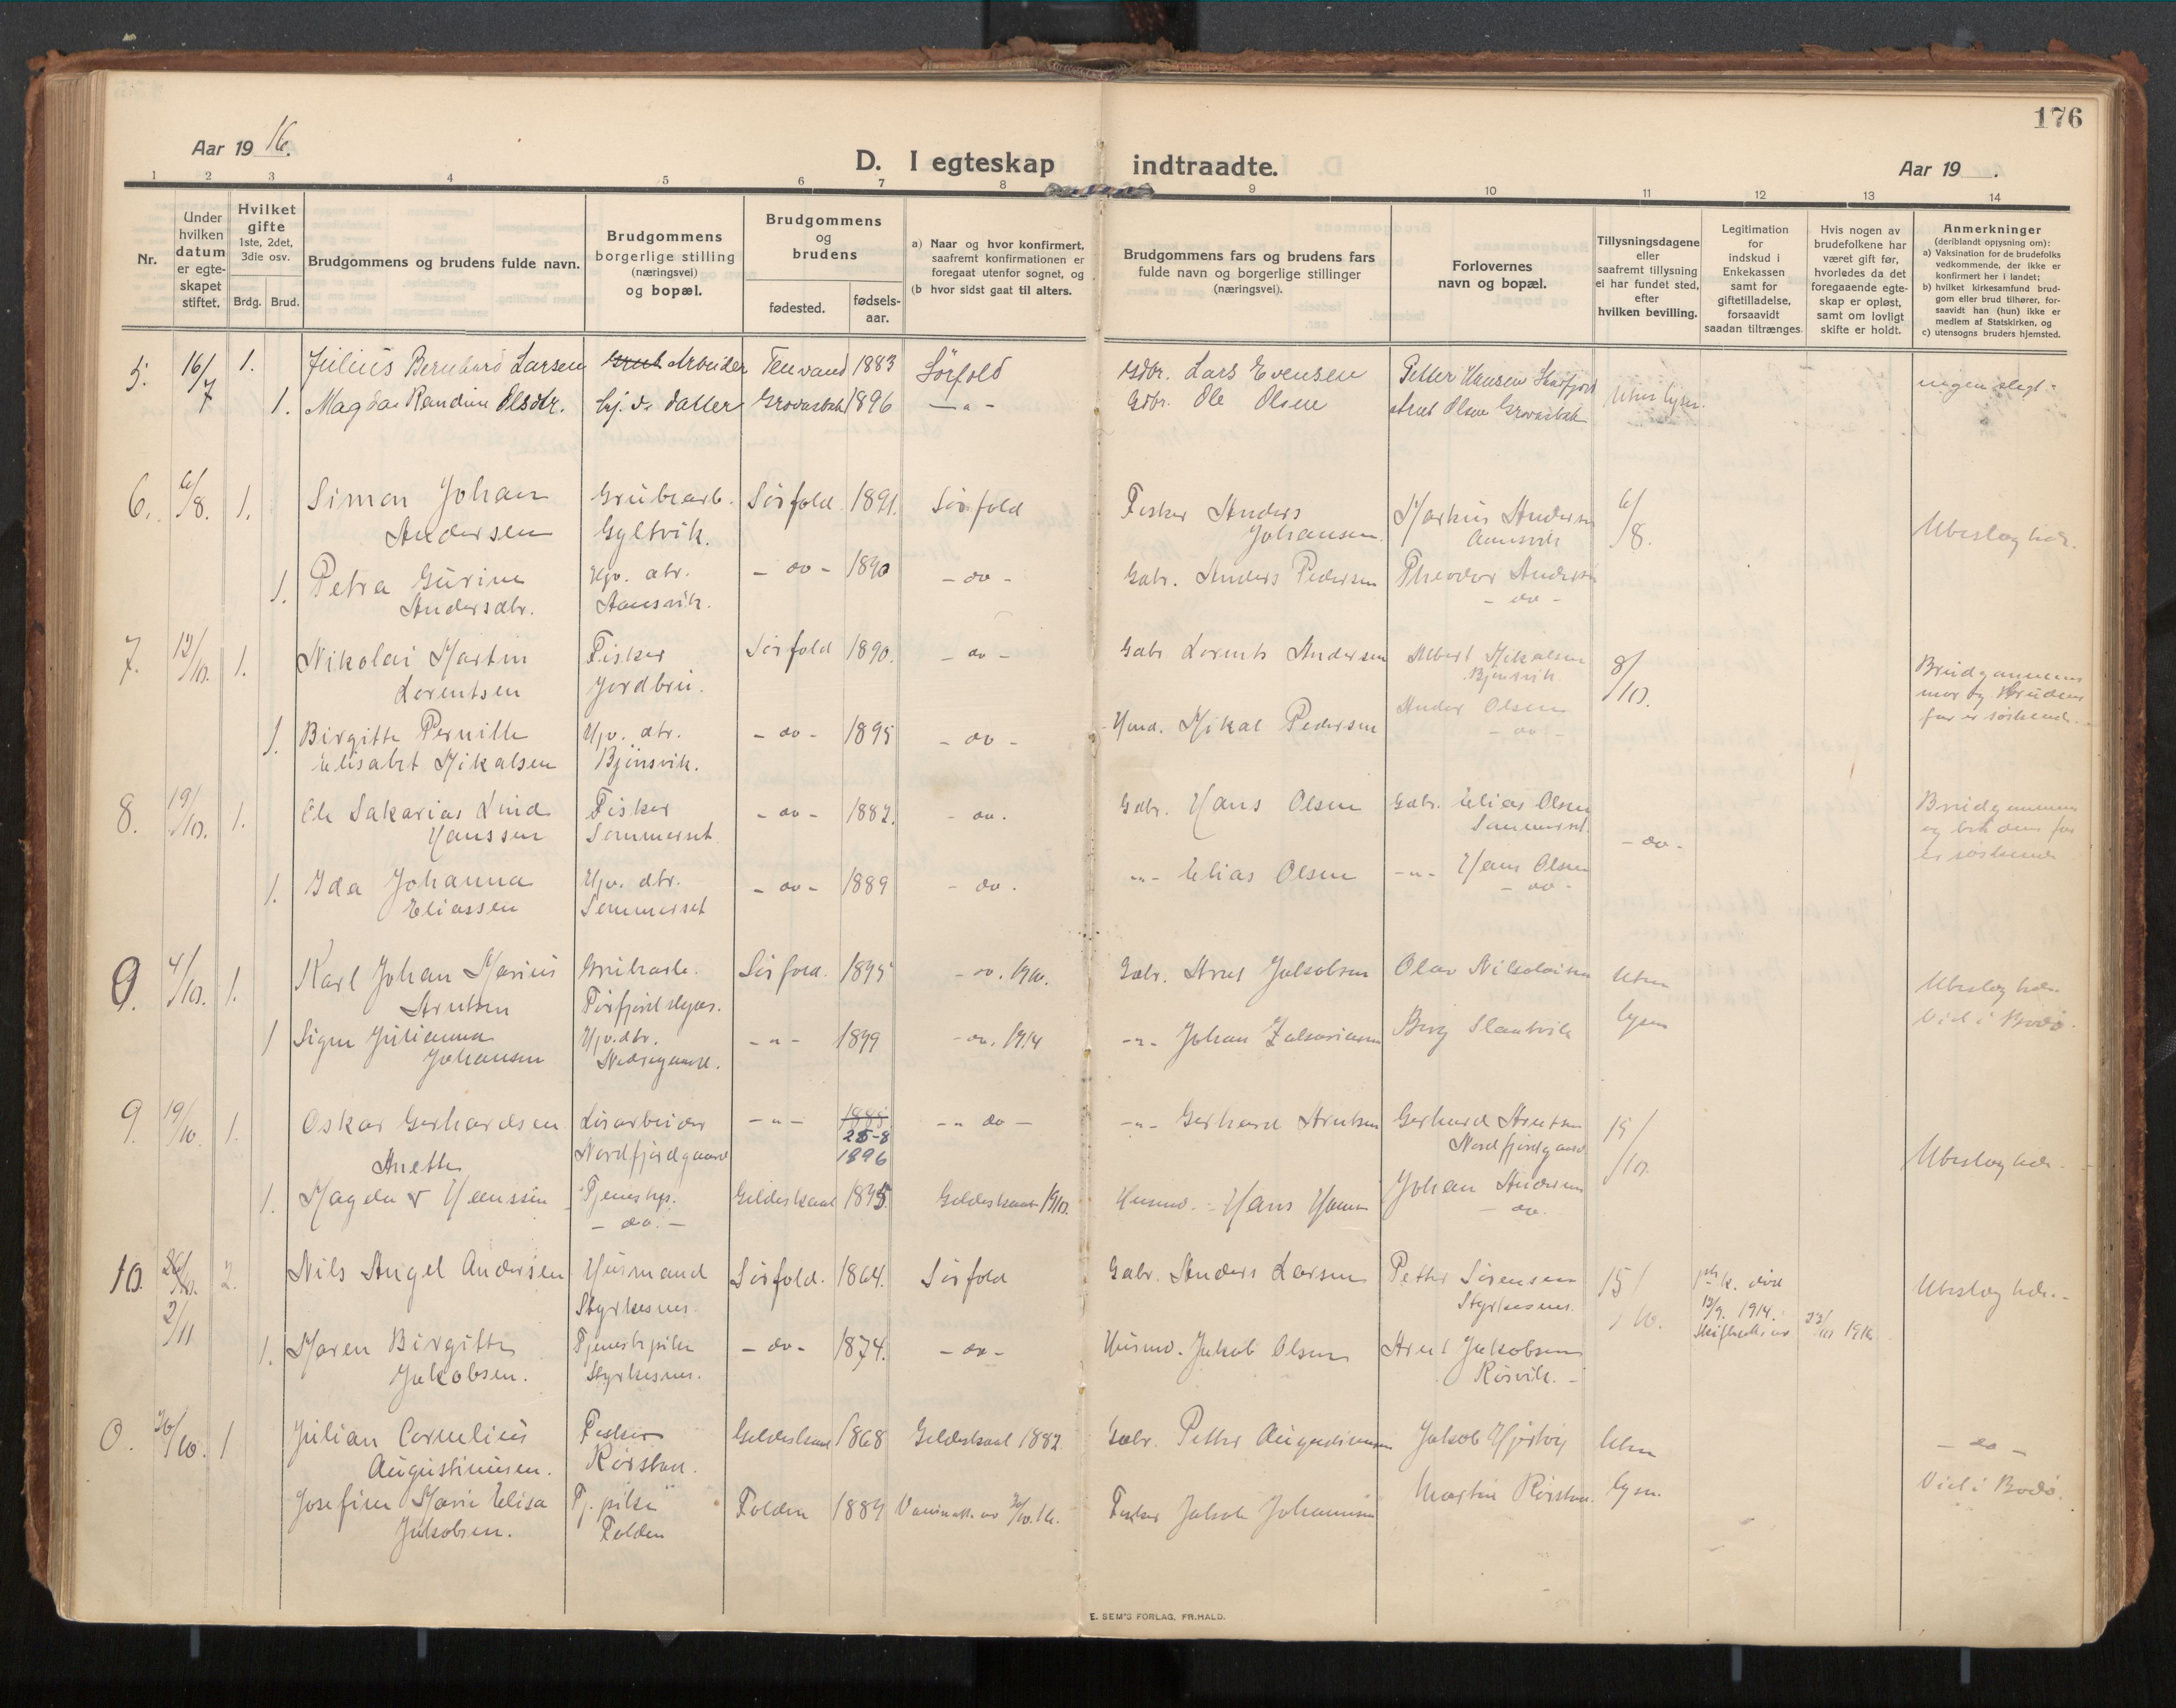 176
Aar 19 16.
D. I egteskap indtraadte.
Aar 19 .
1 2 3 4 5 6 7 8 9 10 11 12 13 14
Nr.
Under hvilken datum er egte-skapet stiftet.
Hvilket gifte 1ste, 2det, 3die osv.
Brdg. Brud.
Brudgommens og brudens fulde navn.
Brudgommens borgerlige stilling (næringsvei) og bopæl.
Brudgommens og brudens
fødested.
fødsels-aar.
a) Naar og hvor konfirmert, saafremt konfirmationen er foregaat utenfor sognet, og
(b hvor sidst gaat til alters.
Brudgommens fars og brudens fars fulde navn og borgerlige stillinger (næringsvei).
Forlovernes navn og bopæl.
Tillysningsdagene eller saafremt tillysning ei har fundet sted, efter hvilken bevilling.
Legitimation for indskud i Enkekassen samt for giftetilladelse, forsaavidt saadan tiltrænges.
Hvis nogen av brudefolkene har været gift før, hvorledes da det foregaaende egte-skap er opløst, samt om lovligt skifte er holdt.
Anmerkninger (deriblandt opjysning om):
a) Vaksination for de brudefolks vedkommende, der ikke er konfirmert her i landet;
b) hvilket kirkesamfund brud-gom eller brud tilhører, for-saavidt han (hun) ikke er medlem af Statskirken, og
c) utensogns bruders hjemsted.
5. 16/7 1. Julius Bernhard Larsen Arbeider 1883 Sörfold Gdbr. Lars Evensen Petter Hansen ingen slegt.
1. Magda Randine Olsdtr. hj. v. datter Grovasbak 1896 —"- Gdbr. Ole Olsen Arnt Olsen Grovasbak Uten lysn.
6. 6/8. 1. Simon Johan Grubearb. Sørfold 1891. Sørfold Fisker Anders Markus Andersen 6/8. Ubeslægtede.
Andersen Gyltvik. Johansen. Aansvik
1. Petra Gurine Hjv. dtr. - do - 1890 - do - Gdbr. Anders Pedersen Theodor Andersen
Andersdtr. Aansvik. - do -
7. 12/10. 1. Nikolai Martin Fisker Sørfold 1890. - do - Gdbr Lorents Andersen Albert Mikalsen 8/10. Brudgommens
Lorentsen Jordbru. Bjørsvik mor og brudens
1. Birgitte Pernille Hjv. dtr. - do - 1895 - do - Husmd. Mikal Pedersen Ander Olsen far er søskende.
Elisabet Mikalsen Bjørsvik. - do -
8. 19/10. 1. Ole Sakarias Lind Fisker - do - 1882. - do. Gdbr. Hans Olsen Gdbr. Elias Olsen - do - Brudgommens
Hanssen Sommerset Sommerset. og brudens far
1. Ida Johanna Hjv. dtr. - do - 1889 - do. -"- Elias Olsen -"- Hans Olsen er søskende
Eliassen Sommerset - do -
9. 4/10. 1. Karl Johan Marius Grubearb. Sørfold. 1895 - do. 1910. Gdbr. Arnt Jakobsen Olav Nikolaisen Uten Ubeslægtede
Arntsen
1 Signe Julianna Hjv. dtr. - " - 1899 - do. 1914 -"- Johan Zakariasen Berg lysn Viet i Bodø.
Johansen
9. 19/10. 1. Oskar Gerhardsen Løsarbeider - " - 1885 - " do - -"- Gerhard Arntsen Gerhard Arntsen 15/10. Ubeslægtede.
Nordfjordgaard 25-8 1896 Nordfjordgaard
Anette
1. Magda Hanssen Tjenestep. Gildeskaal 1895. Gildeskaal 1910. Husmd. Hans Johan Andersen
- do. - - do.
10. 26/10. 2. Nils Angel Andersen Husmand Sørfold. 1864. Sørfold Gdbr. Anders Larsen Petter Sørensen 15/10. 1ste k. død Ubeslægtede.
2/11 Styrkesnes. Styrkesnes. 13/9. 1914.
1. Maren Birgitte Tjenestepike - do - 1874. - do - Husmd. Jakob Olsen Arnt Jakobsen 23/10 1916
Jakobsen. Styrkesnes. Røsvik. -
0. 26/10. 1 Julian Cornelius Fisker Gildeskaal 1868 Gildeskaal 1882. Gdbr. Petter Augustinussen Jakob Uten - do -
Augustinusen. Rørstad.
Josefine Marie Elisa Tj. pike Folden 1884 Fisker Jakob Johannesen Martin Rørstad. lysn. Viet i Bodø.
Jakobsen. Folden
E. SEM'S FORLAG, FR.HALD.